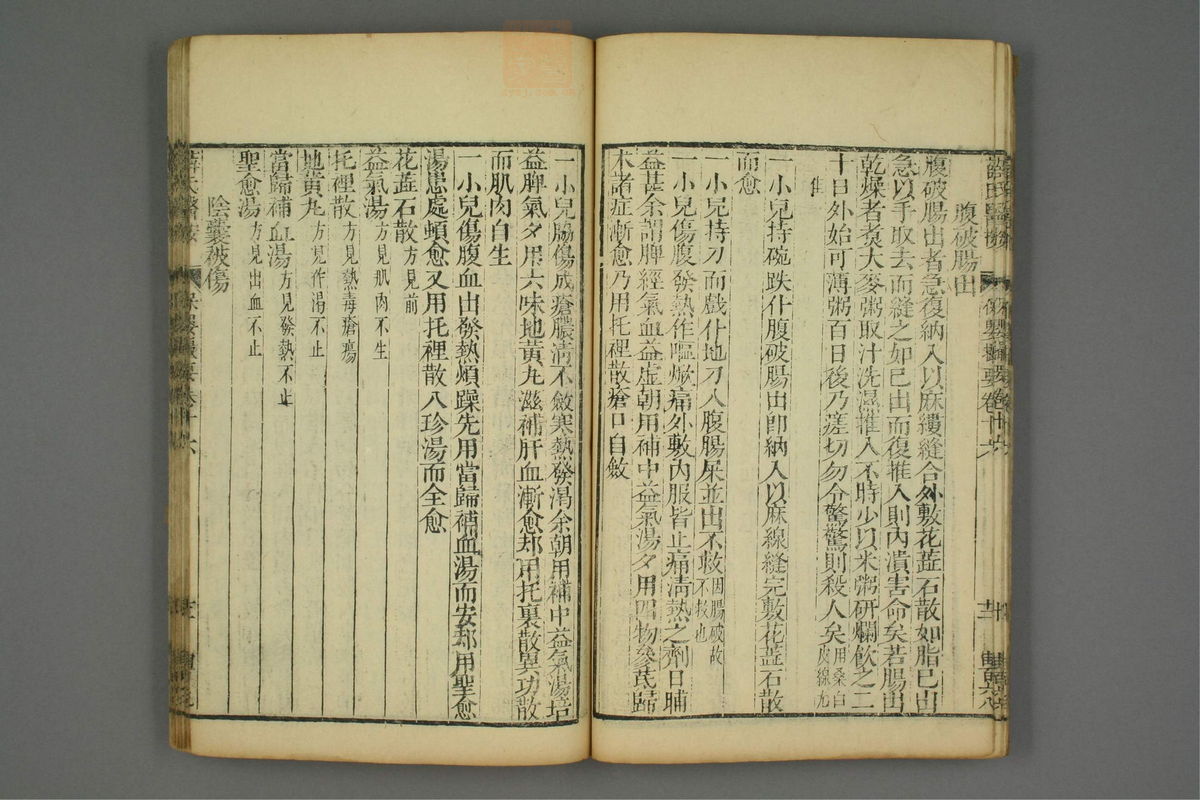 腹破腸出
腹破腸出者急復納入以麻縷縫合外敷花蕋石散如脂已出
急以手取去而縫之如已出而復推入則內潰害命矣若腸出
乾燥者煮大麥粥取汁洗濕推入不時少以米粥研爛飲之二
十日外始可薄粥百日後乃瘥切勿令驚驚則殺人矣用桑白皮線尤
佳
一小兒持碗跌仆腹破腸出卽納入以麻線縫完敷花蕋石散
而愈
一小兒持刀而戲仆地刀入腹腸屎並出不救因腸破故不救也
一小兒傷腹發熱作嘔㷫痛外敷內服皆止痛清熱之劑日晡
益甚余謂脾經氣血益虛朝用補中益氣湯夕用四物參芪歸
木諸症漸愈乃用托裡散瘡口自斂
一小兒脇傷成瘡膿清不斂寒熱發渴余朝用補中益氣湯培
益脾氣夕用六味地黃丸滋補肝血漸愈却用托裏散異功散
而肌肉自生
一小兒傷腹血出發熱煩躁先用當歸補血湯而安却用聖愈
湯患處頓愈又用托裡散八珍湯而全愈
花蕋石散方見前
益氣湯方見肌肉不生
托裡散方見熱毒瘡瘍
地黃丸方見作渴不止
當歸補血湯方見發熱不止
聖愈湯方見出血不止
陰囊被傷
薛氏醫按
保嬰撮要卷十六